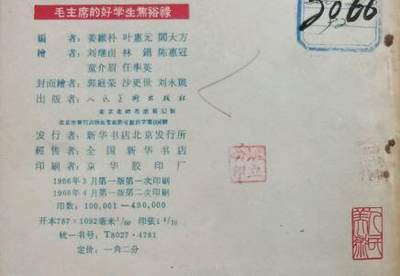 毛主席的好学生焦裕禄
编 者：姜維朴 叶惠元 閻大方
繪 者：刘继卣 林 鍇 陈惠冠
童介眉 任率英
封面繪者：郭庭荣 沙更世 刘永凱
出 版 者：人民美术出版社
发 行 者：新华书店北京发行所
經 售 者：全国新华书店
印 刷 者：京华胶印厂
1966年3月第一版第一次印刷
1966年4月第一版第二次印刷
印数：100,001—480,000
开本787×1092毫米1/60 印张1 4/10
統一书号：T8027·4781
定价：一角二分
2066